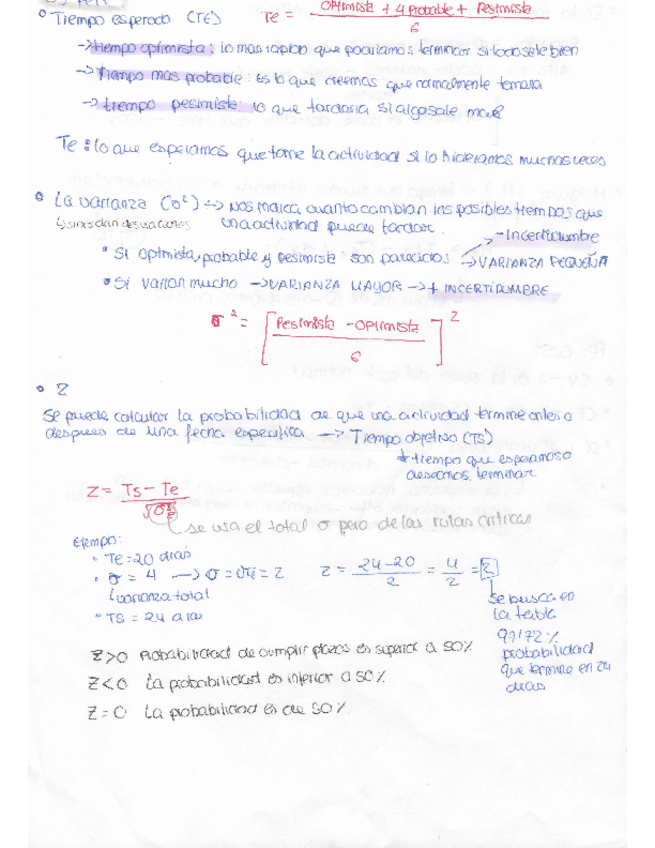 Tiempo esperado (TE) Te = Optimista + 4 Probable + Pesimista / 6
-> tiempo optimista: lo mas rapido que podriamos terminar si todo sale bien
-> Tiempo mas probable: Es lo que creemas que normalmente tomara
-> tiempo pesimista: lo que tardaria si algo sale mal
Te: lo que esperamos que tome la actividad si lo hicieramos muchas veces
La varianza (σ²) -> nos marca cuanto cambian los posibles tiempos que
una actividad puede tardar.
- Incertidumbre
• Si optimista, probable y pesimista son parecidos -> VARIANZA PEQUEÑA
• Si varian mucho -> VARIANZA MAYOR -> + INCERTIDUMBRE
σ² = [Pesimista - Optimista / 6]²
• Z
Se puede calcular la probabilidad de que una actividad termine antes o
despues de una fecha especifica -> Tiempo objetivo (TS)
* tiempo que esperamos o
deseamos terminar
Z = Ts - Te / √σ²
se usa el total σ pero de las rutas criticas
Ejemplo:
• Te = 20 dias
• σ = 4 -> σ = √4 = 2 Z = 24-20 / 2 = 4 / 2 = 2
varianza total
• TS = 24 dias
se busca en
la tabla
97,72 %
probabilidad
que termine en 24
dias
Z>0 Probabilidad de cumplir plazos es superior a 50%
Z<0 La probabilidad es inferior a 50%
Z=0 La probabilidad es de 50%